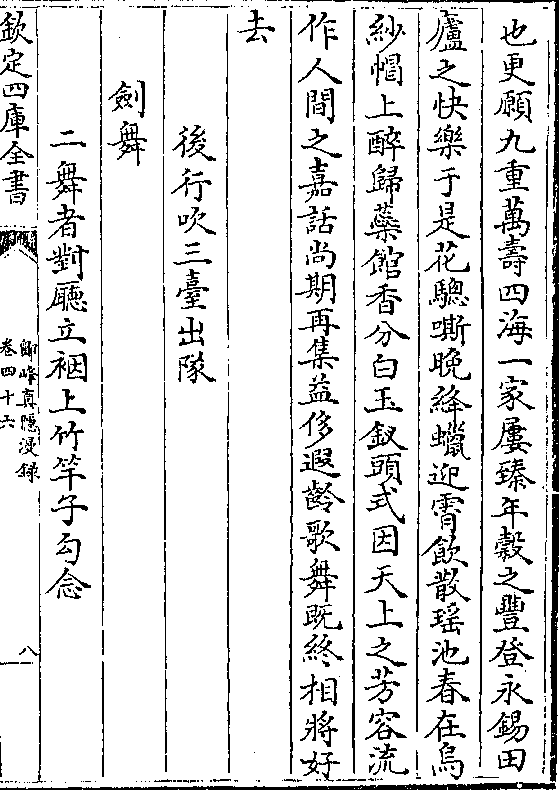 也更願九重萬壽四海一家屢臻年穀之豐登永錫田
廬之快樂于是花驄嘶晩絳蠟迎宵飲散瑶池春在烏
紗帽上醉歸蘂館香分白玉釵頭式因天上之芳容流
作人間之嘉話尚期再集益侈遐齡歌舞既終相將好
去
後行吹三臺出隊
劍舞
二舞者對廳立裀上竹竿子勾念
欽定四庫全書
鄮峰真隱漫録
卷四十六
八